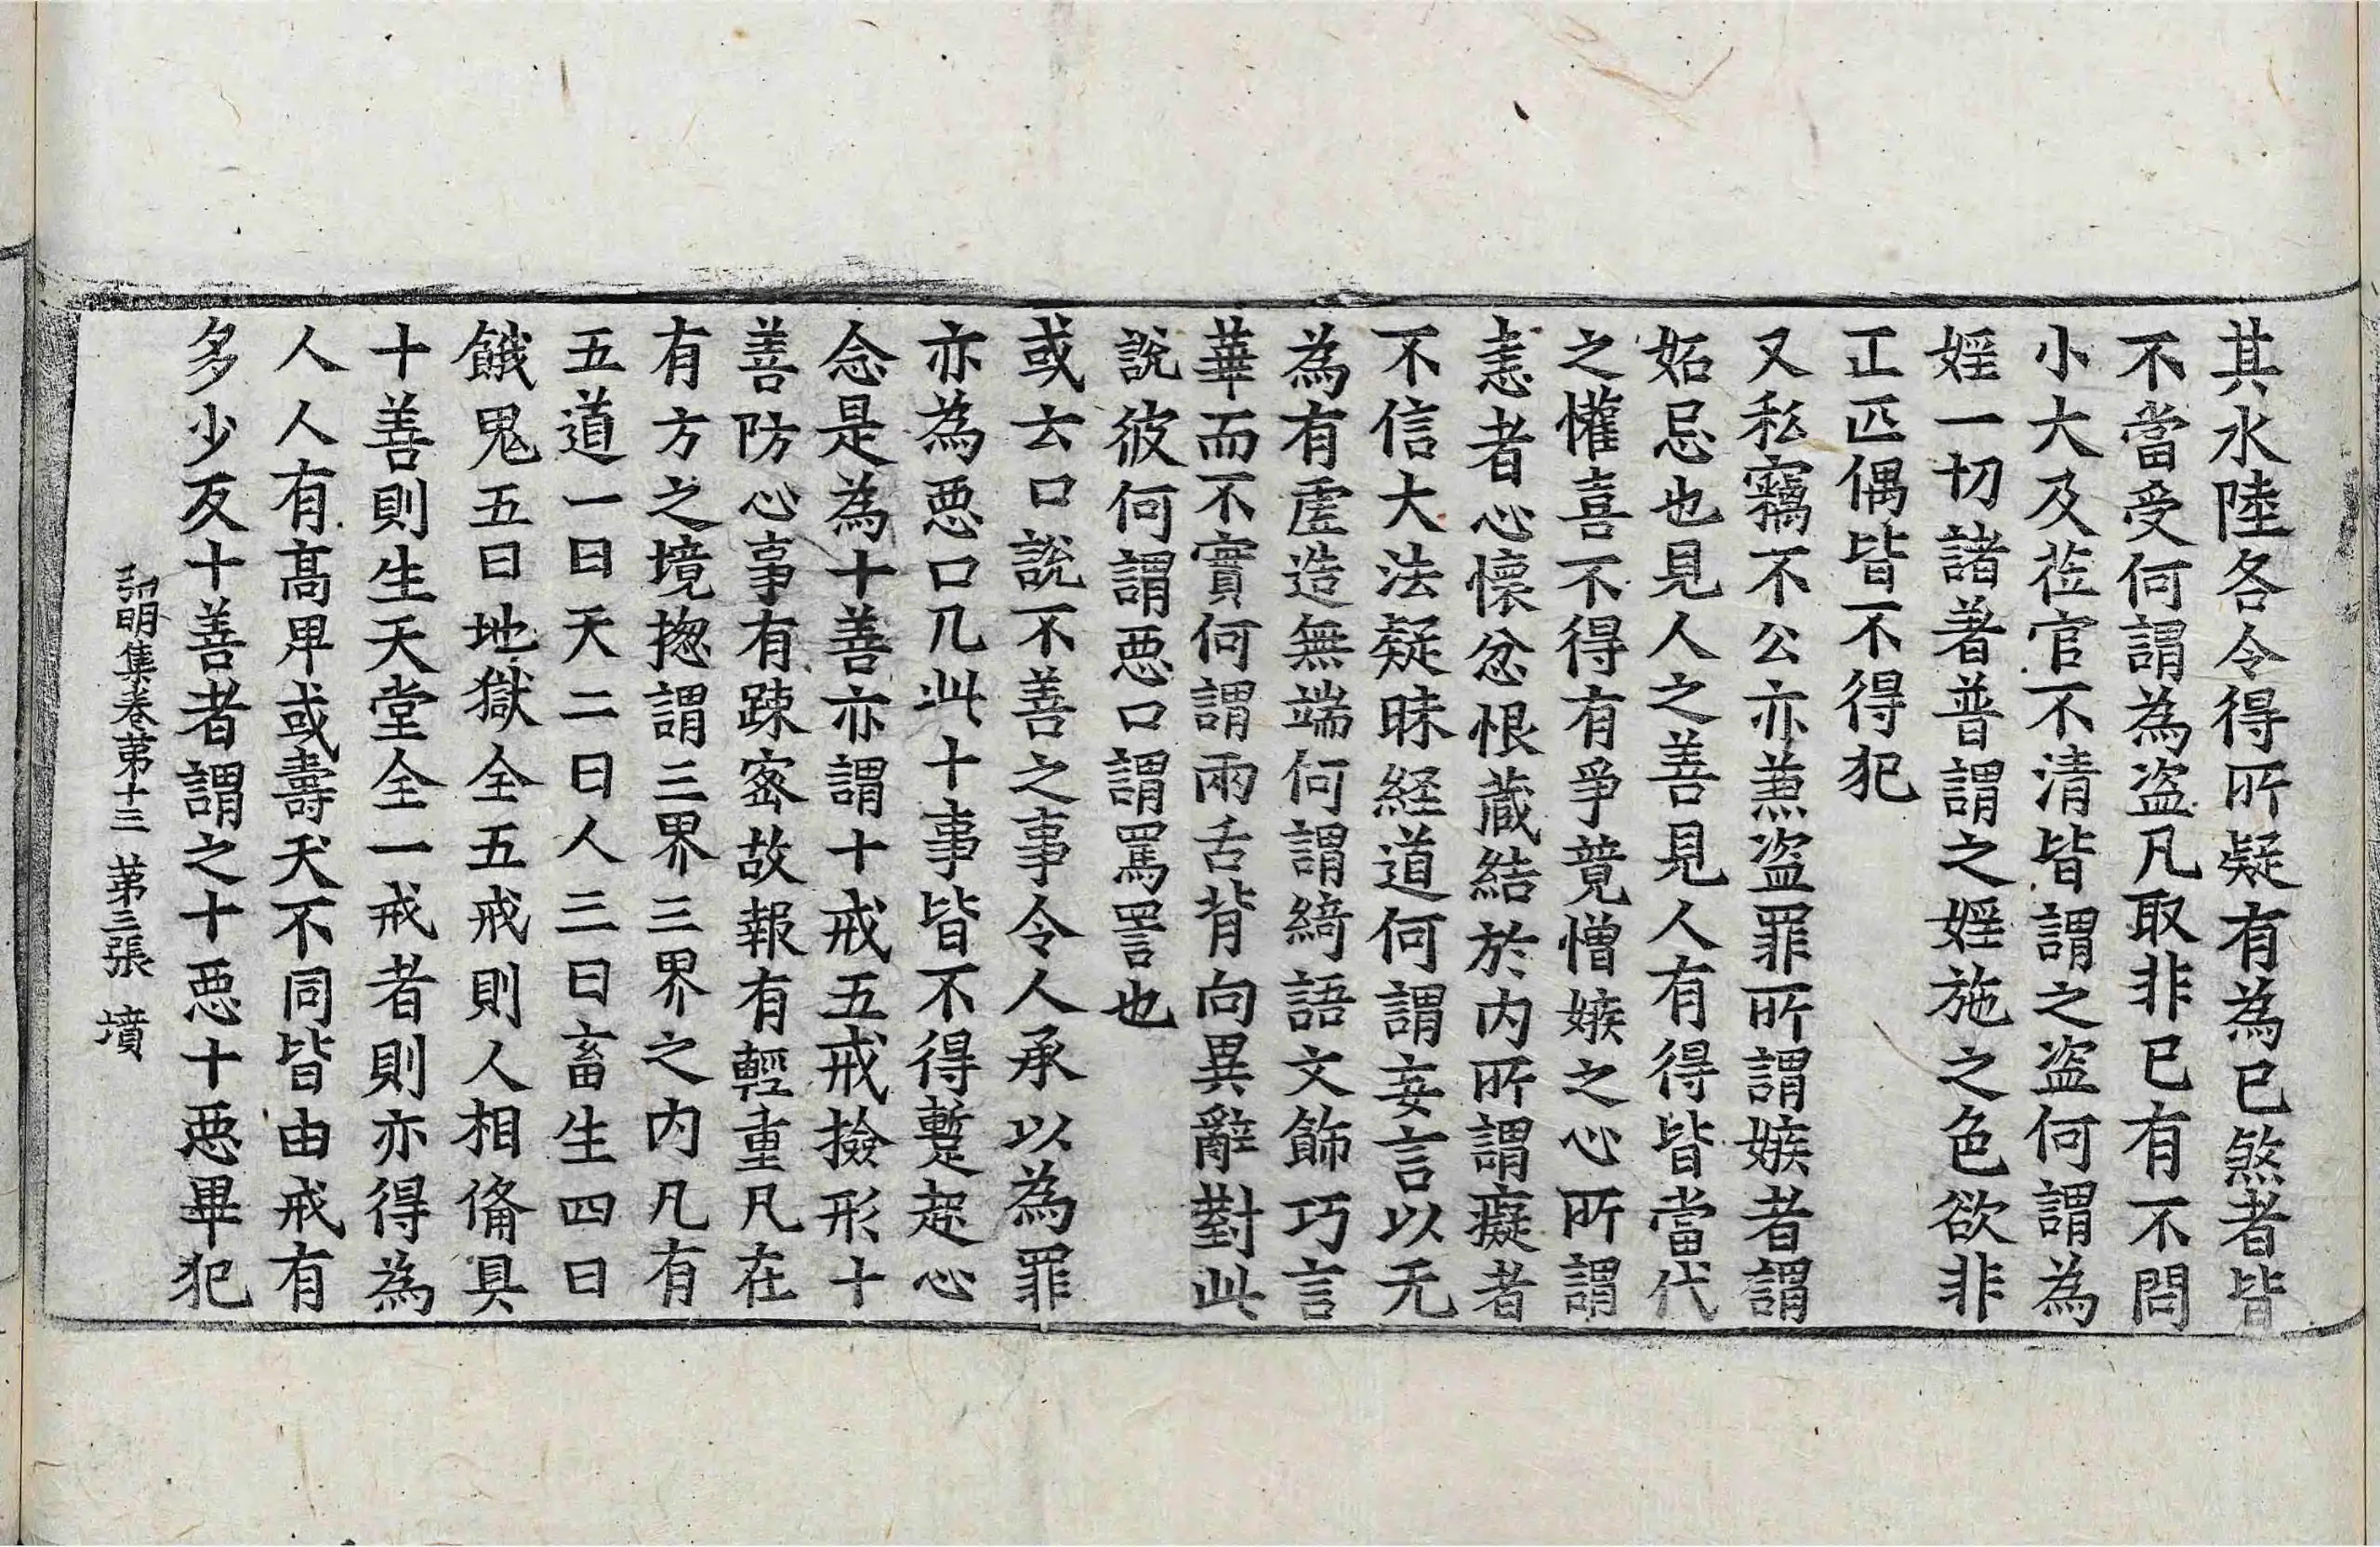 其水陸各令得所疑有為已煞者皆
不當受何謂為盗凡取非已有不問
小大及莅官不清皆謂之盗何謂為
婬一切諸著普謂之婬施之色欲非
正匹偶皆不得犯
又私竊不公亦兼盗罪所謂嫉者謂
妬忌也見人之善見人有得皆當代
之懽喜不得有爭竟憎嫉之心所謂
恚者心懷忿恨蔵結於内所謂癡者
不信大法疑昧経道何謂妄言以无
為有虛造無端何謂綺語文飾巧言
華而不實何謂兩舌背向異辭對此
說彼何謂惡口謂罵詈也
或云口說不善之事令人承以為罪
亦為惡口凢此十事皆不得蹔起心
念是為十善亦謂十戒五戒撿形十
善防心事有踈宻故報有輕重凡在
有方之境揔謂三界三界之内凡有
五道一曰天二曰人三曰畜生四曰
餓鬼五曰地獄全五戒則人相俻具
十善則生天堂全一戒者則亦得為
人人有髙卑或壽夭不同皆由戒有
多少反十善者謂之十惡十惡畢犯
弘明集卷苐十三 苐三張 墳